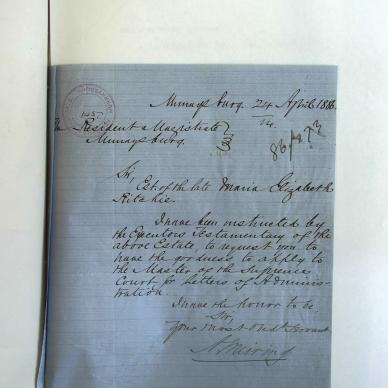 Murraysburg. 24 April 1886.
The Resident Magistrate
Murraysburg.
Sir,
Est. of the late Maria Elizabeth
Ritchie.
I have been instructed by
the Executors Testamentary of the
above Estate, to request you to
have the goodness to apply to
the Master of the Supreme
Court for Letters of Adminis-
tration.
I have the honor to be
Sir,
your most obdt Servant